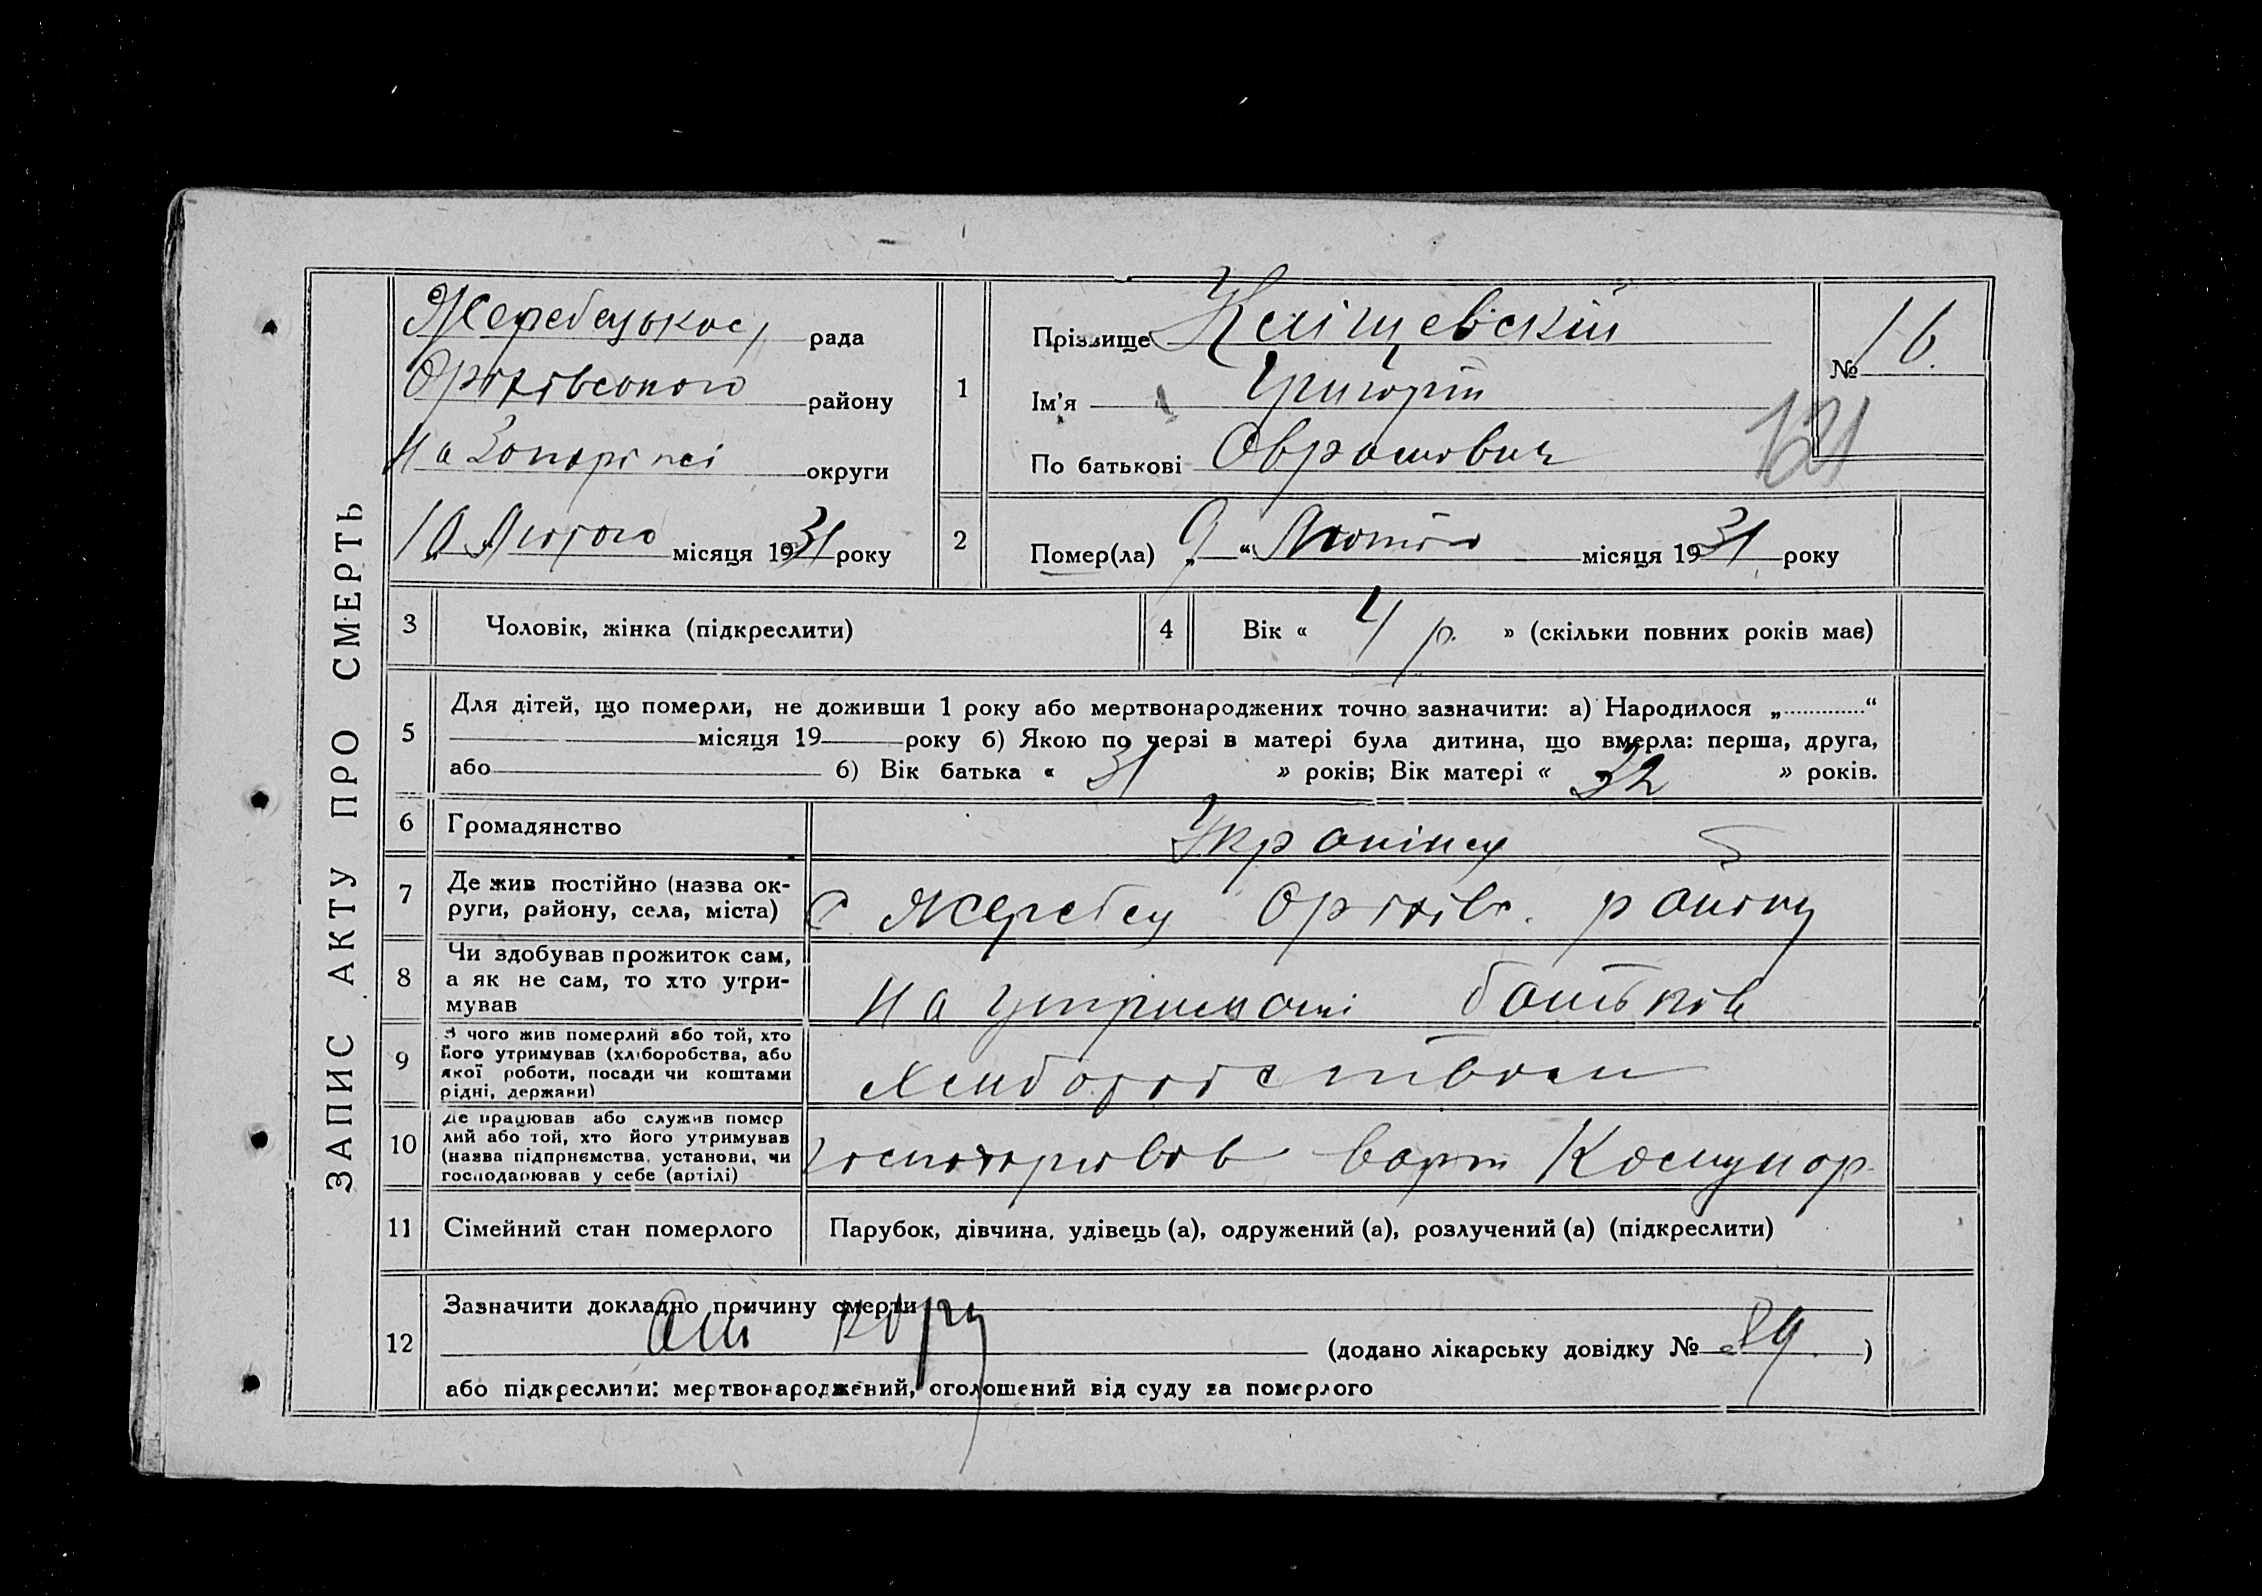 ЗАПИС АКТУ ПРО СМЕРТЬ
Жеребецької рада
Оріхівського району
на Запоріжі округи
10 Лютого місяця 1931 року
1
Прізвище Кліщевский
Ім'я Григорій
По батькові Оврамович
№ 16.
121
2
Помер(ла) „9“ Лютого місяця 1931 року
3 Чоловік, жінка (підкреслити)
4 Вік « 4 р. » (скільки повних років має)
5 Для дітей, що померли, не доживши 1 року або мертвонароджених точно зазначити: а) Народилося „ “
місяця 19 року б) Якою по черзі в матері була дитина, що вмерла: перша, друга,
або б) Вік батька « 31 » років; Вік матері « 32 » років.
6 Громадянство
Українец
7 Де жив постійно (назва ок-
руги, району, села, міста)
С. Жеребец Оріхів. району
8 Чи здобував прожиток сам,
а як не сам, то хто утри-
мував
на утримані батьків
9 З чого жив померлий або той, хто
його утримував (хліборобства, або
якої роботи, посади чи коштами
рідні, держави)
Хлиборобством
10 Де працював або служив помер
лий або той, хто його утримував
(назва підприємства, установи, чи
господарював у себе (артілі)
господорював в арт Комунар
11 Сімейний стан померлого
Парубок, дівчина, удівець (а), одружений (а), розлучений (а) (підкреслити)
12 Зазначити докладно причину смерти
від кору
(додано лікарську довідку № 89.)
або підкреслити: мертвонароджений, оголошений від суду за померлого